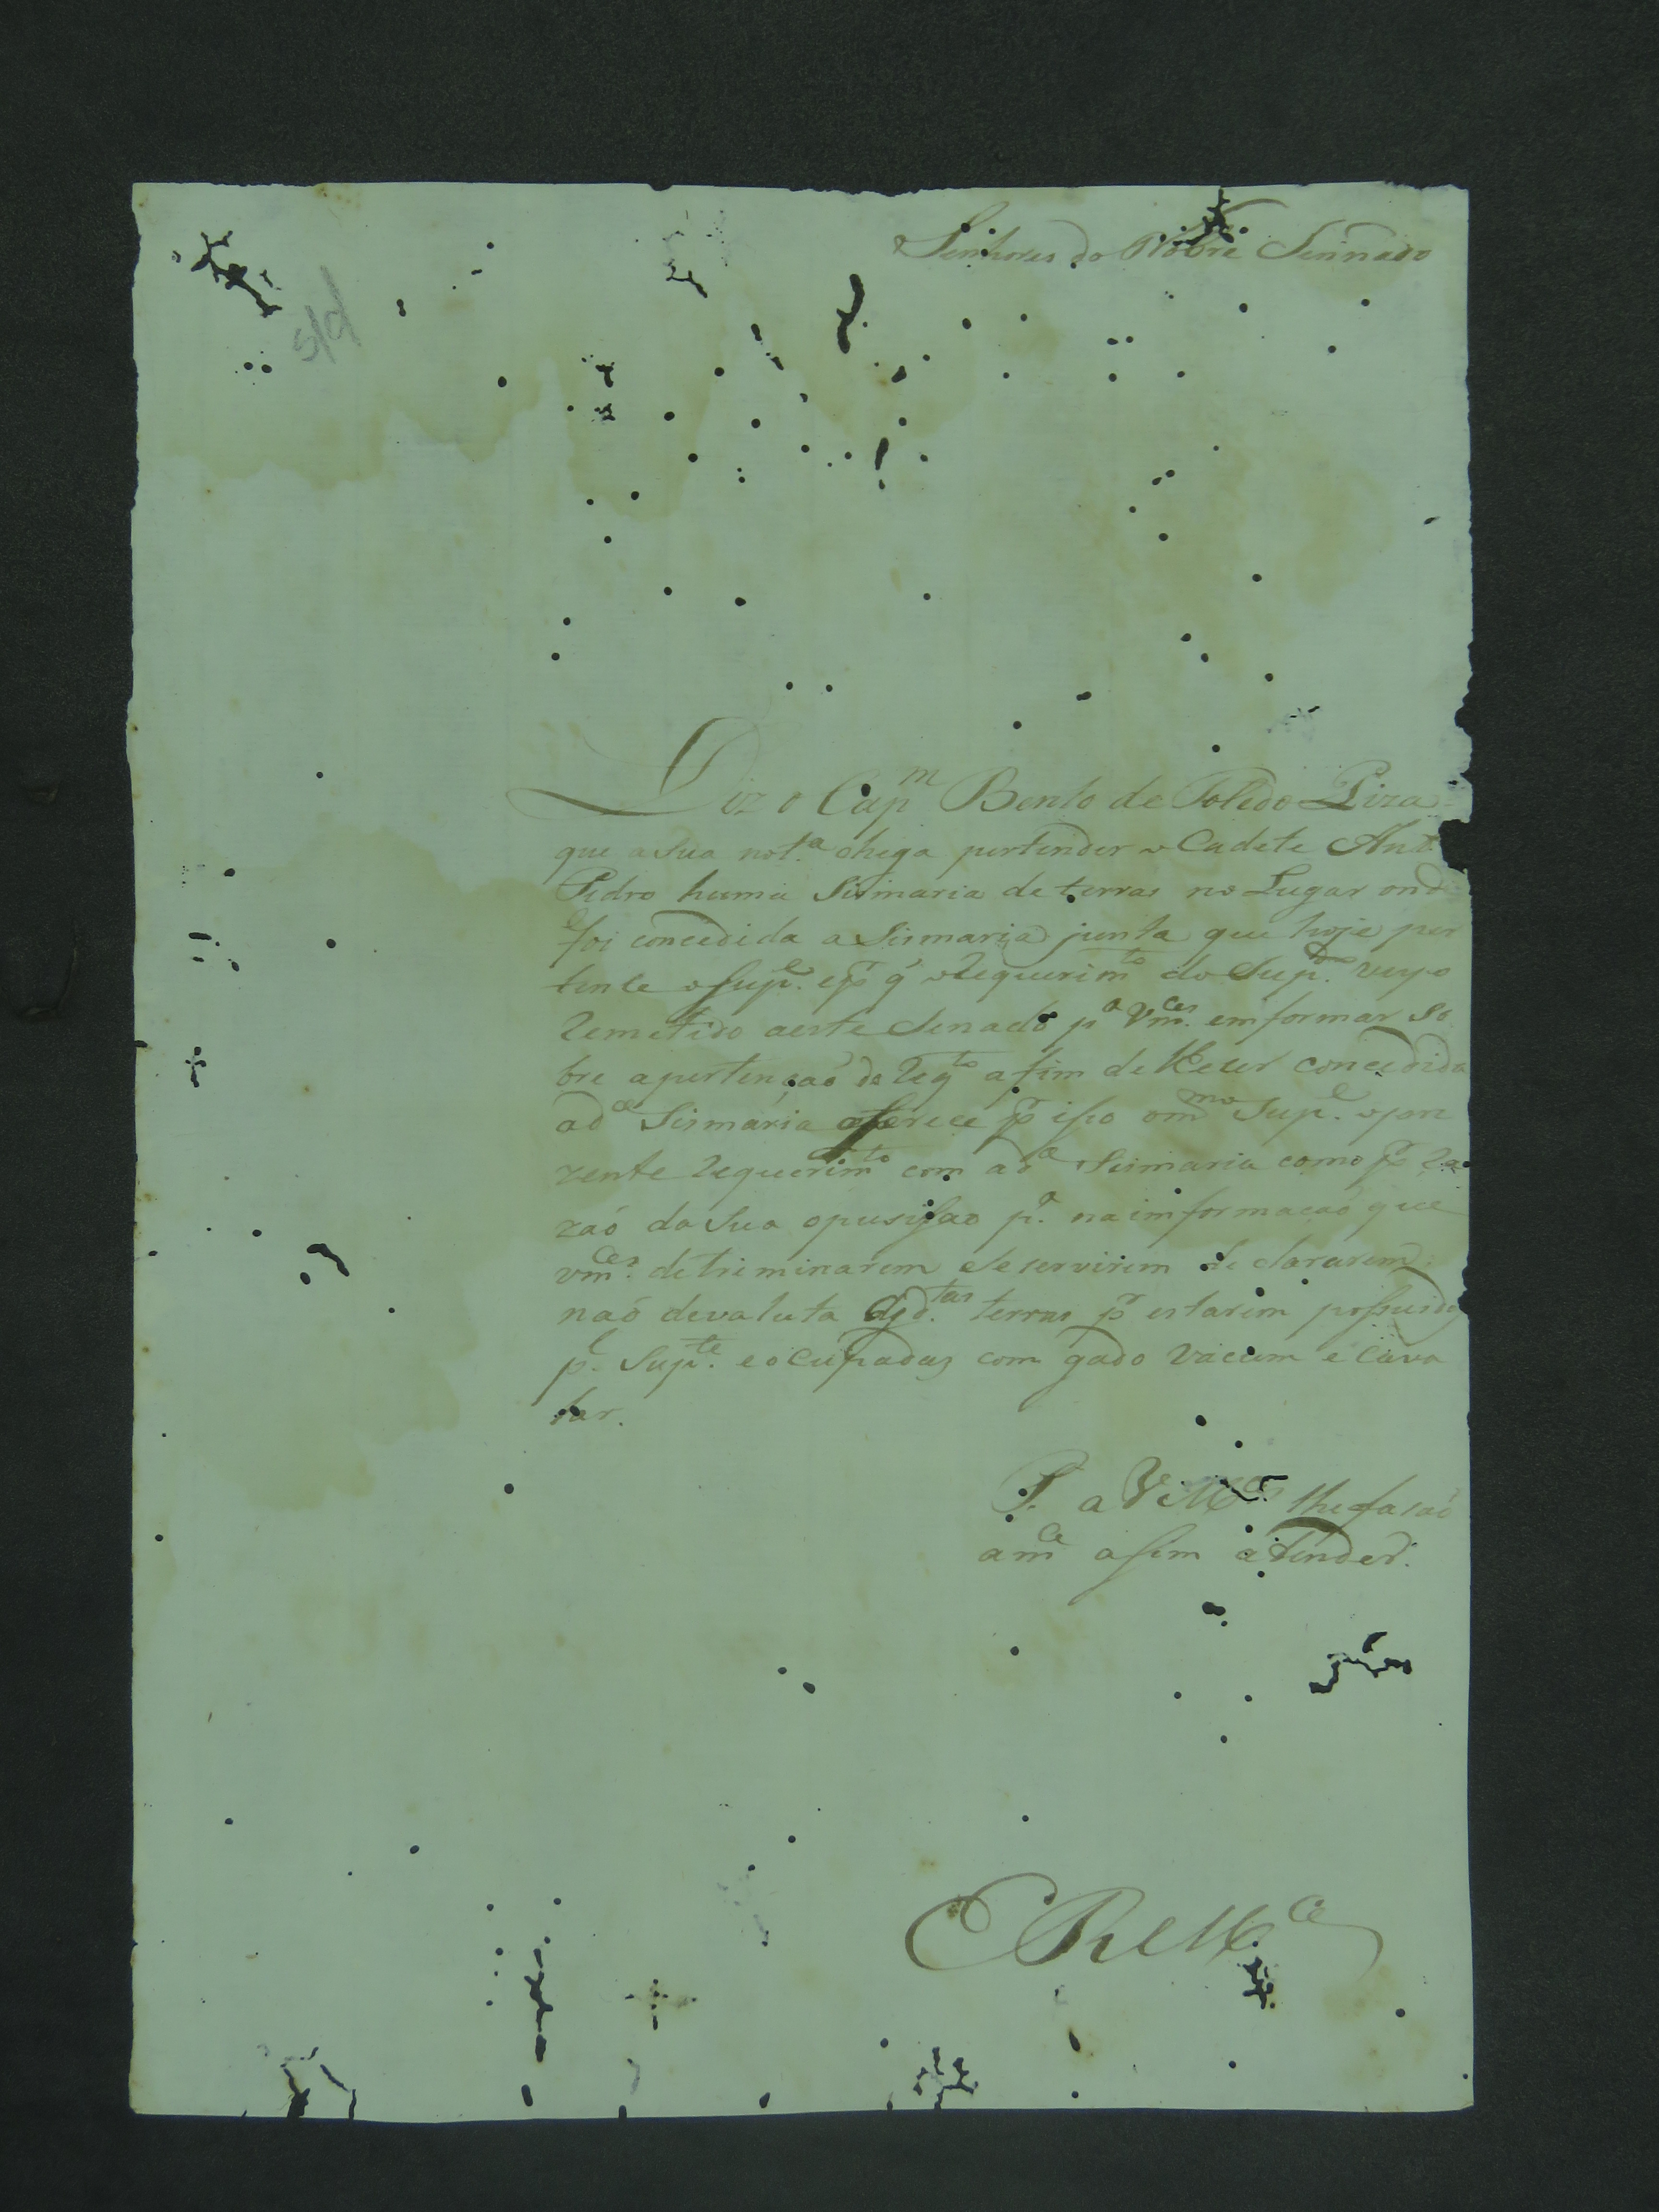 Senhores do Nobre Sennado
s/d
Diz o Cap.m Bento de Toledo Piza
que a sua not.a chega pertender o Cadete Ant.
Pedro huma Sismaria de terras no Lugar ond
e foi concedida a Sismaria junta que hoje per
tence o Sup.e e p.r q' o Requerim.to do Sup.do veyo
Remetido a este Senado p.a Vm.ces emformar so
bre a pertenção do Reg.to a fim de lhe ser concedida
a d.a Sismaria oferece p.r isso o m.mo Sup.e o pre
zente Requerim.to com a d.a Sismaria como p.r Ra
zaó da Sua opusisaó p.a na imformação que
vm.ces detreminarem e se servirem de clararem
naó devaluta as d.tas terras p.r estarem possuidas
p.l Sup.te e ocupadas com gado Vacum e Cava
lar.
P. a V.Mces lhe fasaó
a m.ce asim atender.
E R M.ce